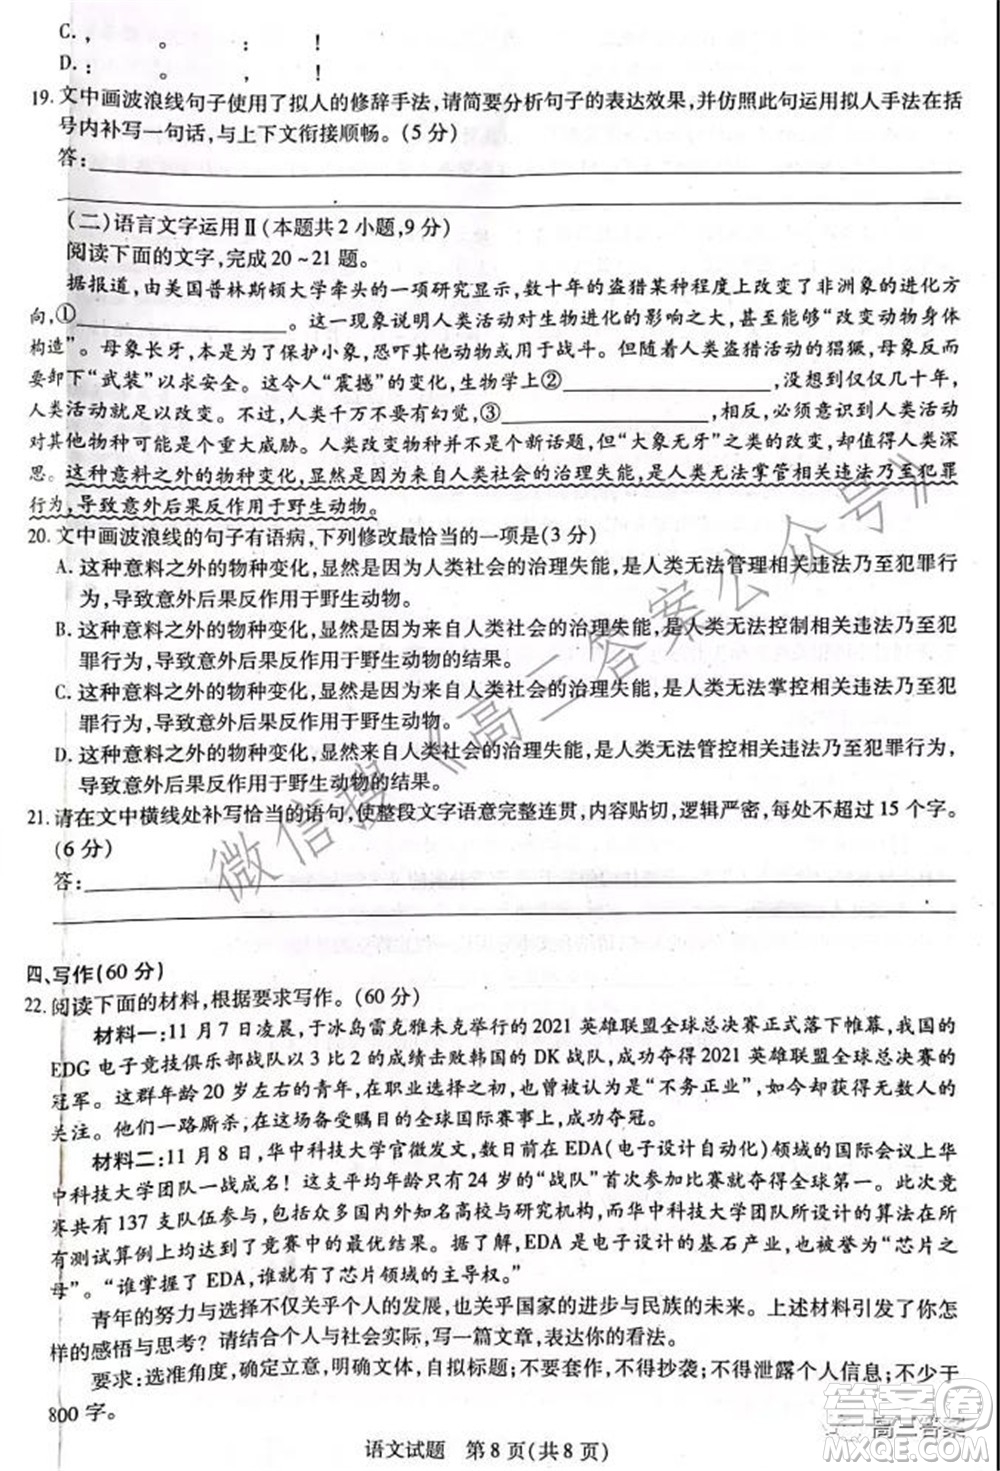 C. ， 。 ： ！
D. ： 。 ， ！
19. 文中画波浪线句子使用了拟人的修辞手法，请简要分析句子的表达效果，并仿照此句运用拟人手法在括
号内补写一句话，与上下文衔接顺畅。(5 分)
答：
(二)语言文字运用Ⅱ(本题共2小题，9分)
阅读下面的文字，完成20~21题。
据报道，由美国普林斯顿大学牵头的一项研究显示，数十年的盗猎某种程度上改变了非洲象的进化方
向，①____________。这一现象说明人类活动对生物进化的影响之大，甚至能“改变动物身体
构造”。母象长牙，本是为了保护小象，恐吓其他动物或用于战斗。随着人类盗猎活动的猖獗，母象反而
要卸下“武装”以求安全。这令人“震撼”的变化，生物学上②____________，没想到仅仅几十年，
人类活动就足以改变。不过，人类千万不要有幻觉，③____________，相反，必须意识到人类活动
对其他物种可能是个重大威胁。人类改变物种并不是个新话题，而“大象无牙”之类的改变，却值得人类深
思。这种意料之外的物种变化，显然是因为来自人类社会的治理失能，是人类无法掌管相关违法乃至犯罪
行为，导致意外后果反作用于野生动物。
20. 文中画波浪线的句子有语病，下列修改最恰当的一项是(3分)
A. 这种意料之外的物种变化，显然是由于人类社会的治理失能，是人类无法管理相关违法乃至犯罪行
为，导致意外后果反作用于野生动物。
B. 这种意料之外的物种变化，显然是因为来自人类社会的治理失能，是人类无法控制相关违法乃至犯
罪行为，导致意外后果反作用于野生动物的结果。
C. 这种意料之外的物种变化，显然是因为来自人类社会的治理失能，是人类无法掌控相关违法乃至犯
罪行为，导致意外后果反作用于野生动物。
D. 这种意料之外的物种变化，显然是由于人类社会的治理失能，是人类无法管控相关违法乃至犯罪行为，
导致意外后果反作用于野生动物的结果。
21. 请在文中横线处补写恰当的语句，使整段文字语意完整连贯，内容贴切，逻辑严密，每处不超过 15 个字。
(6 分)
答：
四、写作(60 分)
22. 阅读下面的材料，根据要求写作。(60 分)
材料一：11 月 7 日凌晨，于冰岛雷克雅未克举行的 2021 英雄联盟全球总决赛正式落下帷幕，我国的
EDG 电子竞技俱乐部战队以 3 比 2 的成绩击败韩国的 DK 战队，成功夺得 2021 英雄联盟全球总决赛的
冠军。这群年龄 20 岁左右的青年，在职业选择之初，也曾被认为是“不务正业”，此次获得无数人的
关注。他们一路厮杀；在备受瞩目的全球国际赛事上，成功夺冠。
材料二：11 月 8 日，华中科技大学官微发文，数日前在 EDA(电子设计自动化)领域的国际会议上华
中科技大学团队一战成名！这支平均年龄只有 24 岁的“战队”首次参加比赛就夺得全球第一。此次竞
赛共有 137 支队伍参与，包括众多国内外知名高校与研究机构，而华中科技大学团队所设计的算法在所
有测试算例上均达到了竞赛中的最优结果。据了解，EDA 是芯片设计的基石产业，也被誉为“芯片之
母”。“谁掌握了 EDA，谁就有了芯片领域的主导权。”
青年的努力与选择不仅关乎个人的发展，也关乎国家的进步与民族的未来。上述材料引发了你怎
样的感悟与思考？请结合个人与社会实际，写一篇文章，表达你的看法。
要求：选准角度，确定立意，明确文体，自拟标题；不要套作，不得抄袭；不得泄露个人信息；不少于
800 字。
语文试题 第 8 页(共 8 页)
微信搜《高三答案公众号》
答案圈
高三答案